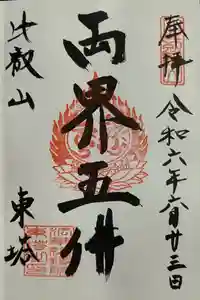 奉拝
令和六年六月廿三日
両界五仏
比叡山
東塔